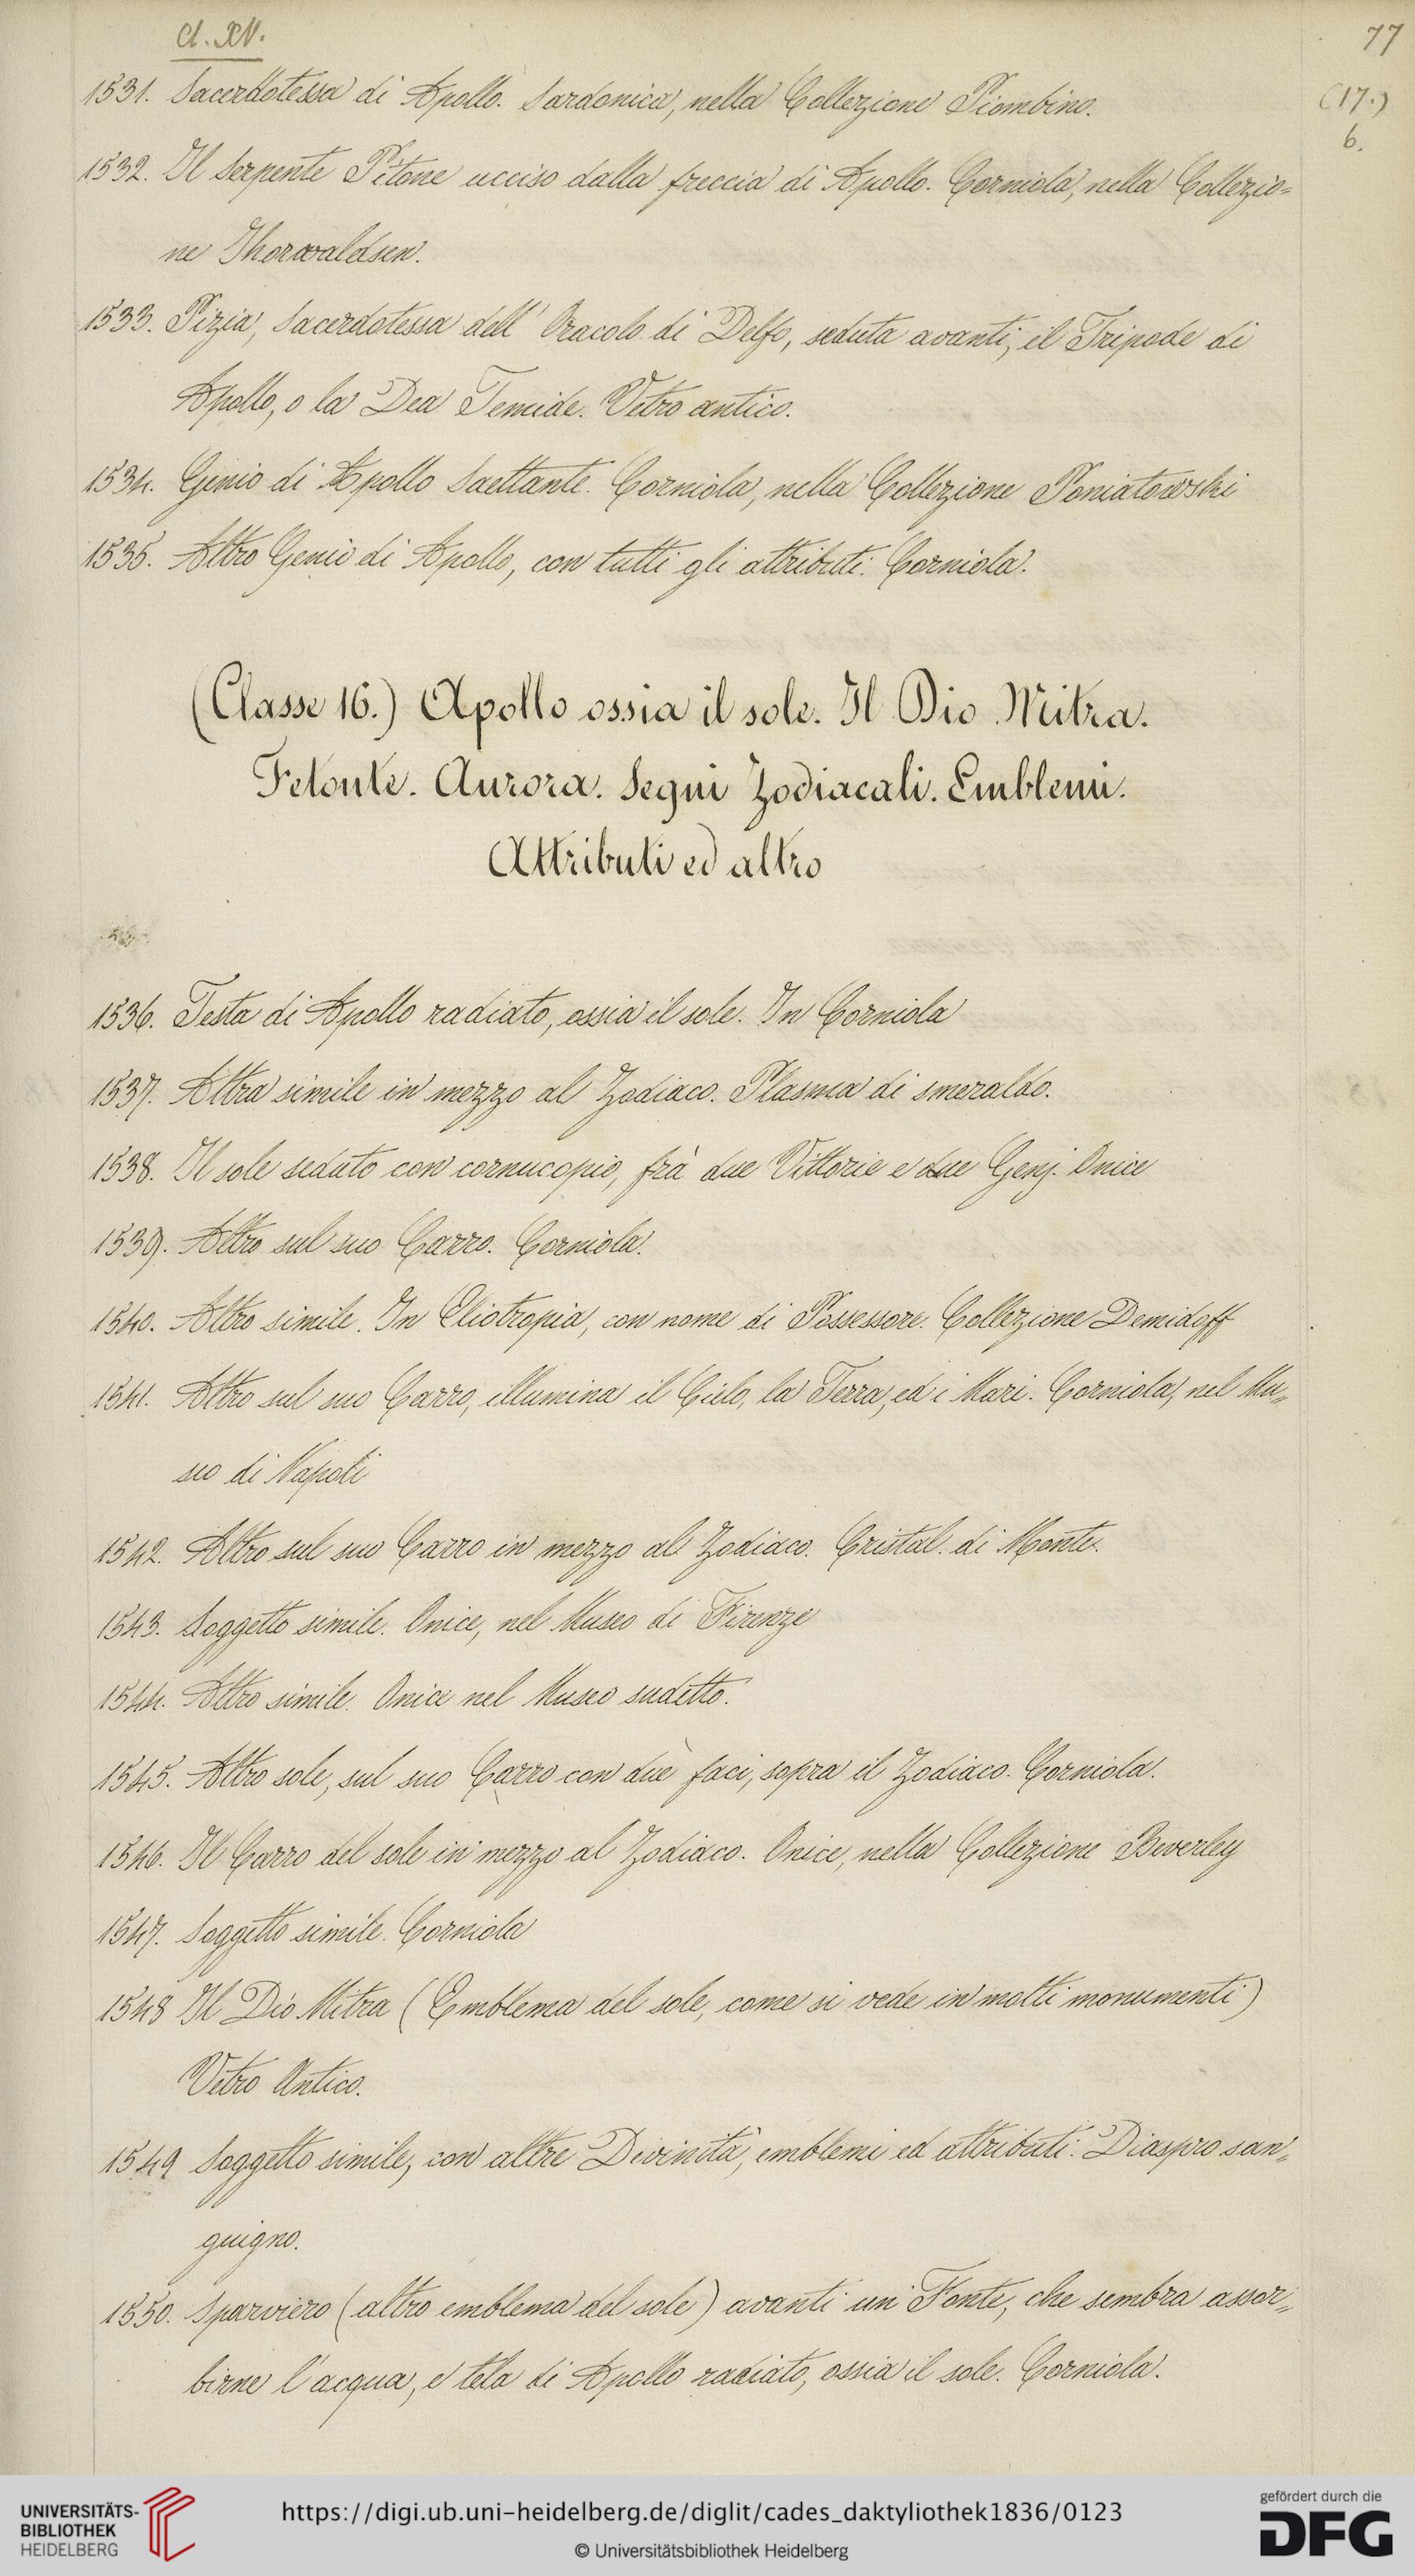 Cl. XV.
77
1531. Sacerdotessa di Apollo. Sardonica, nella Collezione Piombino.
(17.)
6.
1532. Il Serpente Pitone ucciso dalla freccia di Apollo. Corniola, nella Collezio=
ne Thorwaldsen.
1533. Pizia, Sacerdotessa dell' Oracolo di Delfo, seduta avanti, il Tripode di
Apollo, o la Dea Temide. Vetro antico.
1534. Genio di Apollo Saettante. Corniola, nella Collezione Poniatowski
1535. Altro Genio di Apollo, con tutti gli attributi. Corniola.
(Classe 16.) Apollo ossia il sole. Il Dio Mitra.
Fetonte. Aurora. Segni Zodiacali. Emblemi.
Attributi ed altro
1536. Testa di Apollo radiato, ossia il sole. In Corniola
1537. Altra simile in mezzo al Zodiaco. Plasma di smeraldo.
1538. Il sole seduto con cornucopio, frà due Vittorie e due Genj. Onice
1539. Altro sul suo Carro. Corniola.
1540. Altro simile. In Eliotropia, con nome di Possessore. Collezione Demidoff
1541. Altro sul suo Carro, illumina il Cielo, la Terra, ed i Mari. Corniola, nel Mu„
seo di Napoli
1542. Altro sul suo Carro in mezzo al Zodiaco. Cristal. di Monte.
1543. Soggetto simile. Onice, nel Museo di Firenze
1544. Altro simile. Onice nel Museo sudetto.
1545. Altro sole, sul suo Carro con due faci, sopra il Zodiaco. Corniola.
1546. Il Carro del sole in mezzo al Zodiaco. Onice, nella Collezione Beverley
1547. Soggetto simile. Corniola
1548 Il Dio Mitra (Emblema del sole, come si vede in molti monumenti)
Vetro Antico.
1549 Soggetto simile, con altre Divinità, emblemi ed attributi. Diaspro san„
guigno.
1550. Sparviero (altro emblema del sole) avanti un Fonte, che sembra assor„
birne l'acqua, e tela di Apollo radiato, ossia il sole. Corniola.
UNIVERSITÄTS-
BIBLIOTHEK
HEIDELBERG
https://digi.ub.uni-heidelberg.de/diglit/cades_daktyliothek1836/0123
© Universitätsbibliothek Heidelberg
gefördert durch die
DFG